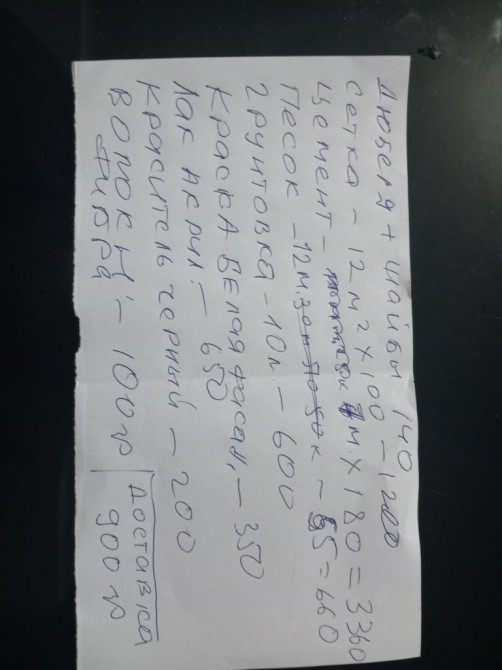 Дюбеля + шайбы 140
сетка - 12 м2 х 100 - 1200
Цемент - м. х 180 = 3360
Песок - 12 м. - 55 = 660
Грунтовка - 10 л. - 600
Краска белая фасад. - 350
Лак акрил. - 650
Краситель черный - 200
Волокн. - 100 гр
фибра
Доставка
900 р